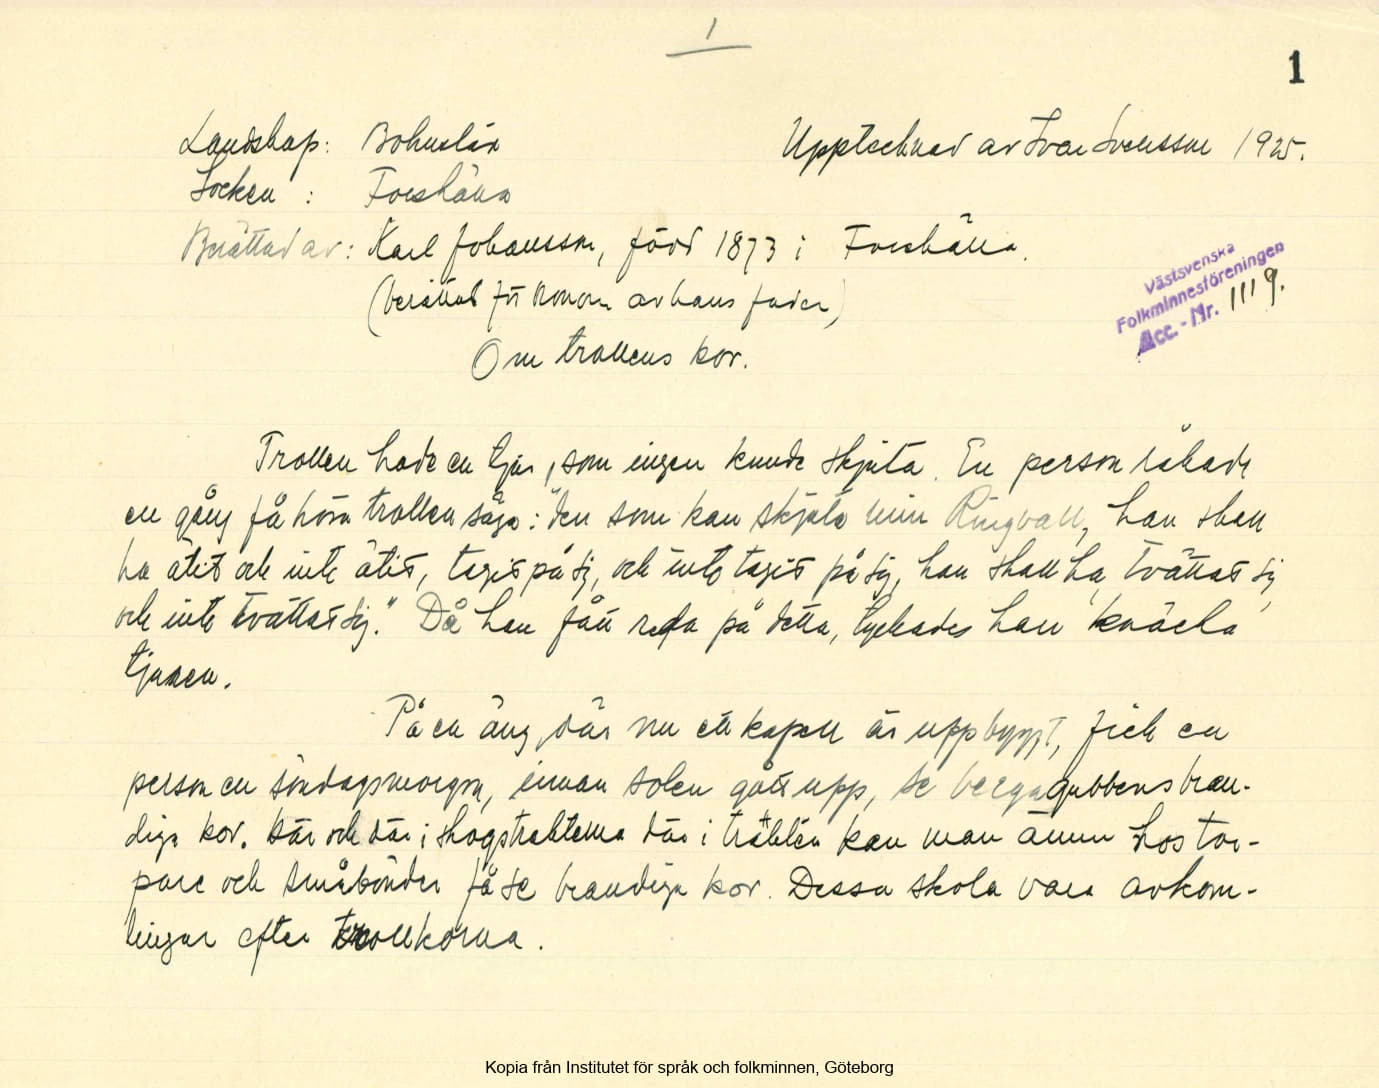 1
1
Landskap: Bohuslän
Upptecknad av Ivar Svensson 1925.
Socken : Forshälla
Berättad av: Karl Johansson, född 1873 i Forshälla.
(berättad för honom av hans fader)
Västsvenska
Folkminnesföreningen
Acc. - Nr. 1119.
Om trollens kor.
Trollen hade en tjur, som ingen kunde skjuta. En person råkade
en gång få höra trollen säga: "den som kan skjuta min Ringvall, han skall
ha ätit och inte ätit, tagit på sig, och inte tagit på sig, han skall ha, tvättat sig
och inte tvättat sig." Då han fått reda på detta, lyckades han knäcka
tjuren.
På en äng, där nu ett kapell är uppbyggt, fick en
person en söndagsmorgon, innan solen gått upp, se bergagubbens bran-
diga kor. Här och där i skogstrakterna där i trakten kan man ännu hos tor-
pare och småbönder få se brandiga kor. Dessa skola vara avkom-
lingar efter trollkorna.
Kopia från Institutet för språk och folkminnen, Göteborg